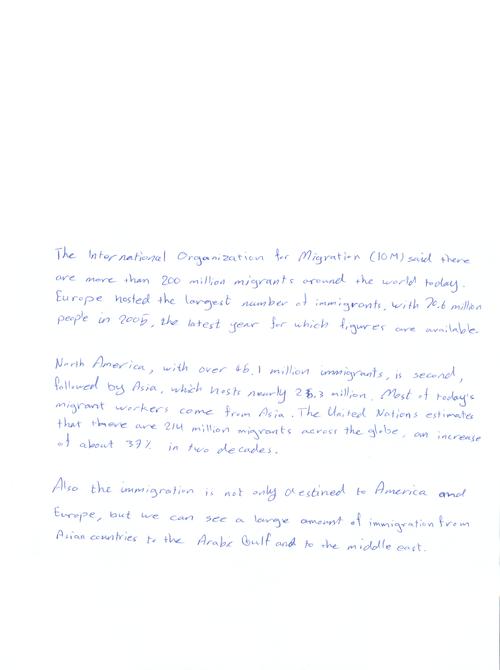 The International Organization for Migration (IOM) said there
are more than 200 million migrants around the world today.
Europe hosted the largest number of immigrants, with 70.6 million
people in 2005, the latest year for which figures are available.
North America, with over 45.1 million immigrants, is second,
followed by Asia, which hosts nearly 25.3 million. Most of today's
migrant workers come from Asia. The United Nations estimates
that there are 214 million migrants across the globe, an increase
of about 37% in two decades.
Also the immigration is not only destined to America and
Europe, but we can see a large amount of immigration from
Asian countries to the Arabc Gulf and to the middle east.